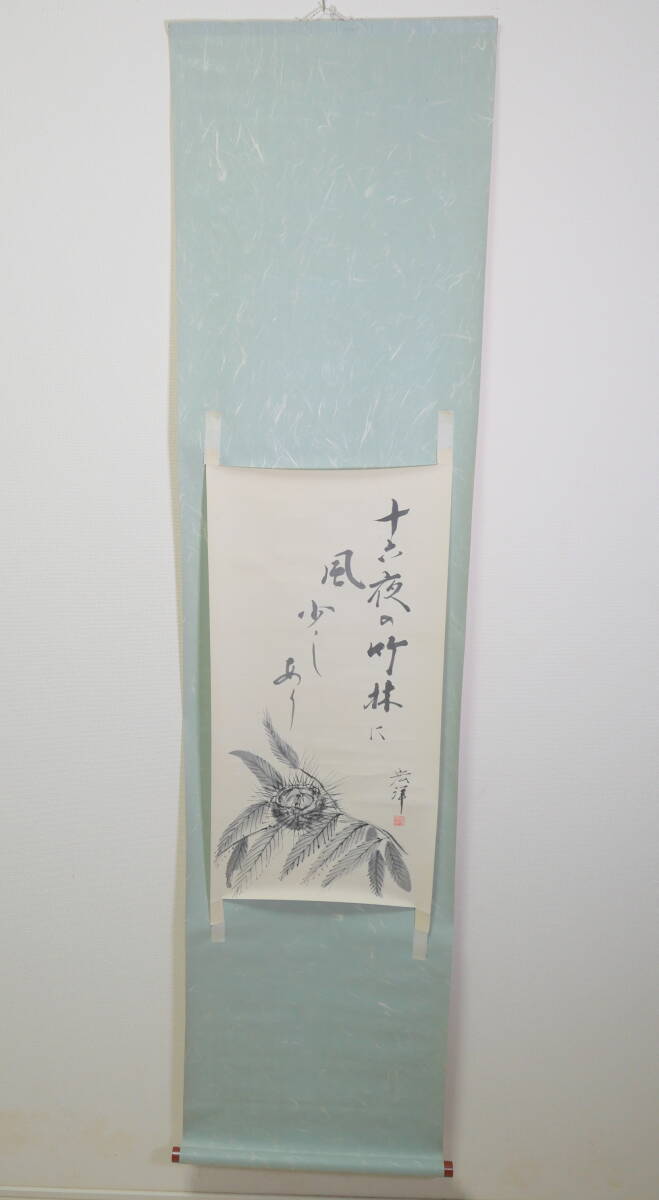 十六夜の竹林に
風
少し
あり